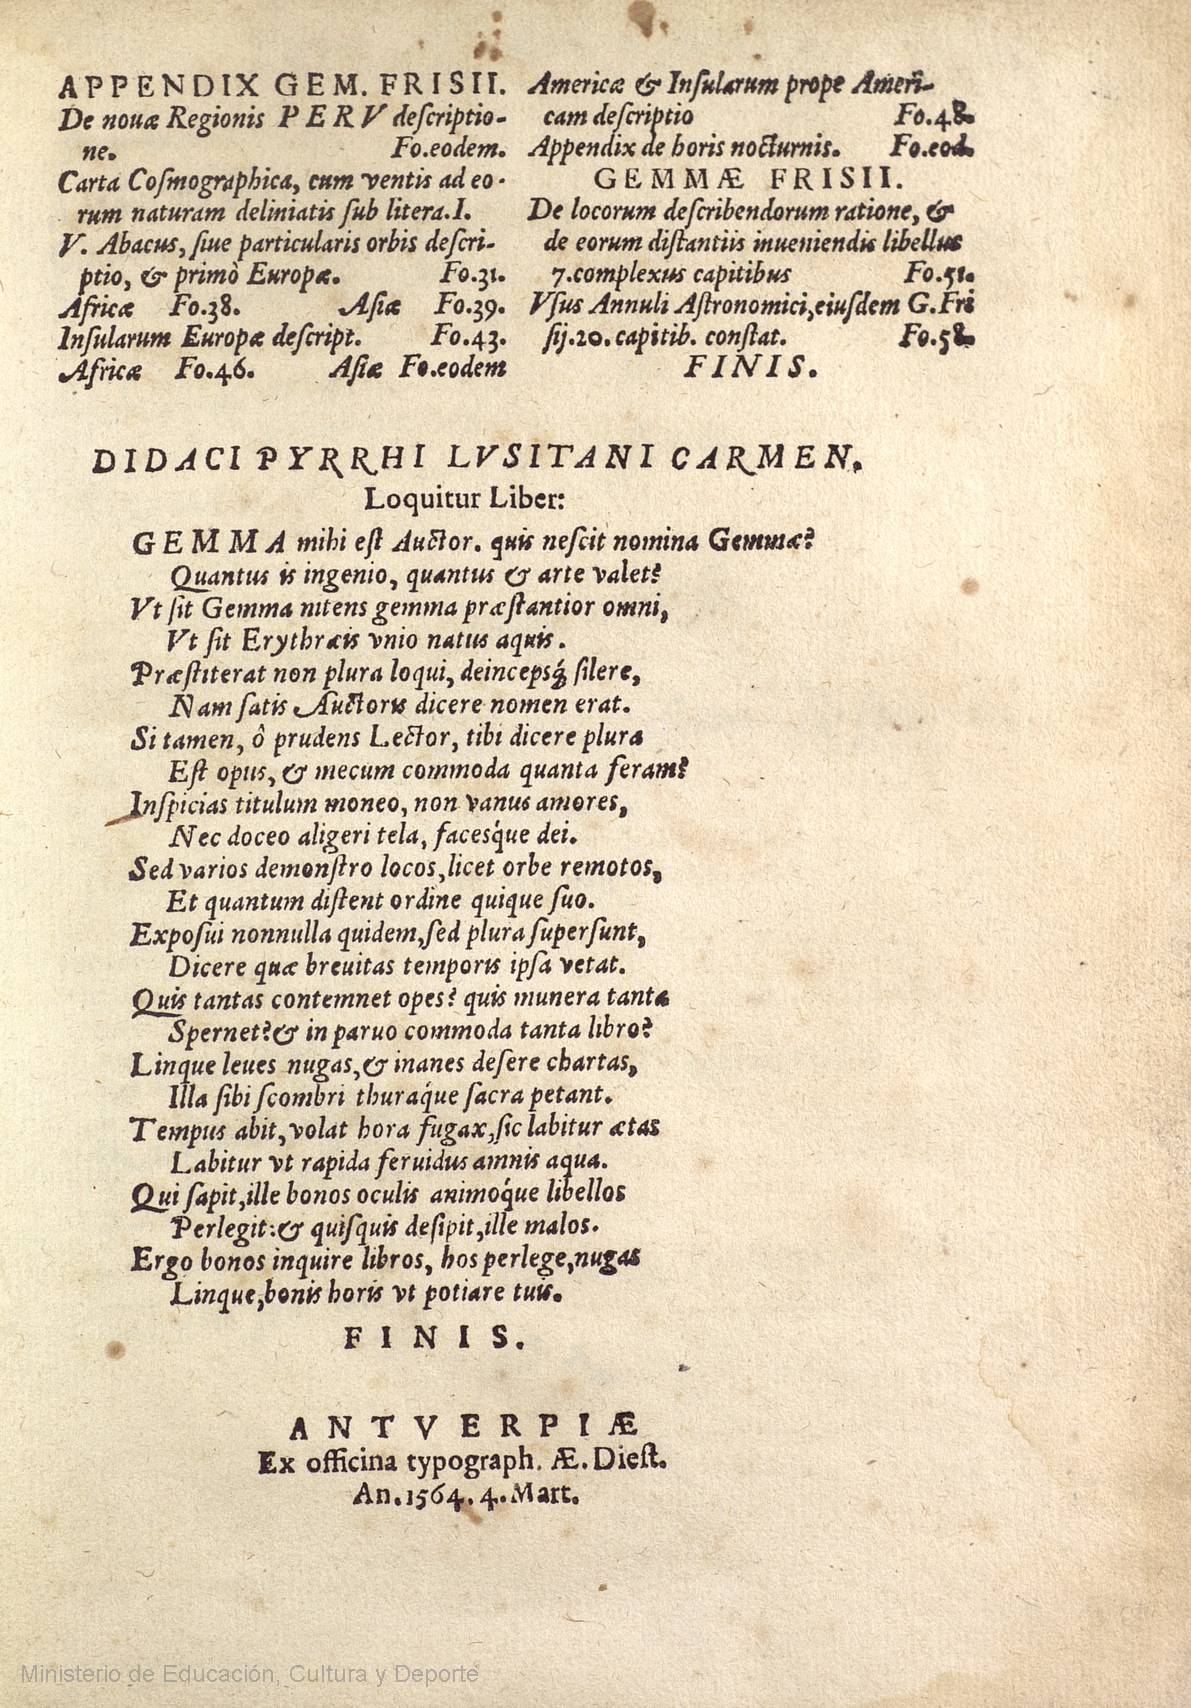 APPENDIX GEM. FRISII.
De nouæ Regionis PERV deſcriptio-
ne. Fo.eodem.
Carta Coſmographica, cum ventis ad eo-
rum naturam deliniatis ſub litera.I.
V. Abacus, ſiue particularis orbis deſcri-
ptio, & primò Europæ. Fo.31.
Africæ Fo.38. Aſiæ Fo.39.
Inſularum Europæ deſcript. Fo.43.
Africæ Fo.46. Aſiæ Fo.eodem
Americæ & Inſularum prope Ameri-
cam deſcriptio Fo.48.
Appendix de horis nocturnis. Fo.eod.
GEMMÆ FRISII.
De locorum deſcribendorum ratione, &
de eorum diſtantiis inueniendis libellus
7.complexus capitibus Fo.51.
Vſus Annuli Aſtronomici,eiuſdem G.Fri
ſij.20.capitib. conſtat. Fo.58.
FINIS.
DIDACI PYRRHI LVSITANI CARMEN.
Loquitur Liber:
GEMMA mihi eſt Auctor. quis neſcit nomina Gemmæ?
Quantus is ingenio, quantus & arte valet?
Vt ſit Gemma nitens gemma præſtantior omni,
Vt ſit Erythræis vnio natus aquis.
Præſtiterat non plura loqui, deincepsq́; ſilere,
Nam ſatis Auctoris dicere nomen erat.
Si tamen, ô prudens Lector, tibi dicere plura
Eſt opus, & mecum commoda quanta feram?
Inſpicias titulum moneo, non vanus amores,
Nec doceo aligeri tela, facesq́ue dei.
Sed varios demonſtro locos,licet orbe remotos,
Et quantum diſtent ordine quique ſuo.
Expoſui nonnulla quidem,ſed plura ſuperſunt,
Dicere quæ breuitas temporis ipſa vetat.
Quis tantas contemnet opes? quis munera tanta
Spernet?& in paruo commoda tanta libro?
Linque leues nugas,& inanes deſere chartas,
Illa ſibi ſcombri thuraq́ue ſacra petant.
Tempus abit,volat hora fugax,ſic labitur ætas
Labitur vt rapida feruidus amnis aqua.
Qui ſapit,ille bonos oculis animoq́ue libellos
Perlegit:& quiſquis deſipit,ille malos.
Ergo bonos inquire libros, hos perlege,nugas
Linque,bonis horis vt potiare tuis.
FINIS.
ANTVERPIÆ
Ex officina typograph. Æ.Dieſt.
An.1564.4.Mart.
Ministerio de Educación, Cultura y Deporte